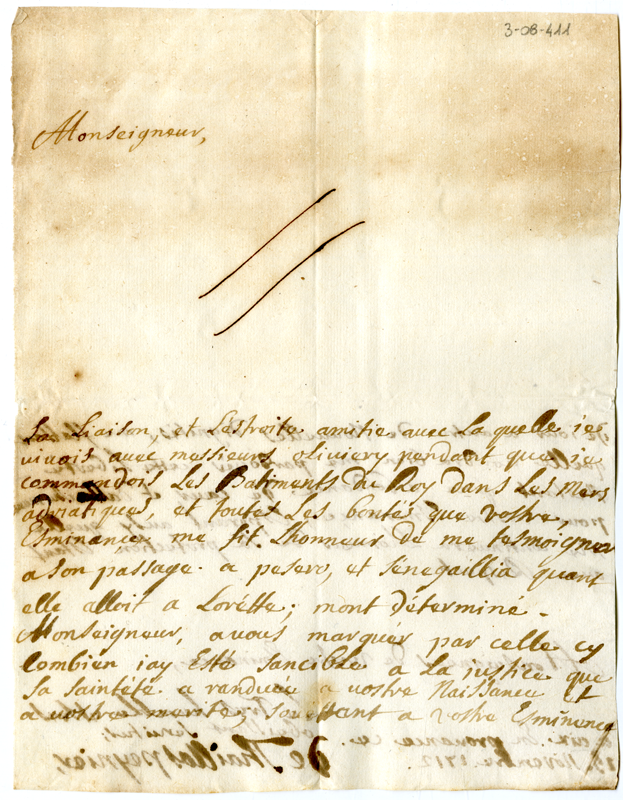 3-08-411
Monseigneur,
La Liaison, et Léstroite amitie avec La quelle ie
viuois avec messieurs oliviery pendant que ie
commandois Les Batiments du Roy dans Les Mers
adriatiques, et toutes Les bontés que vostre,
Esminance me fit Lhonneur de me tesmoigner
a son passage a pesero, et sénegaillia quant
elle alloit a Lorétte; mont détermine
Monseigneur, a vous marquér par celle cy
Combien iay Esté sancible a La justice que
sa saintété a randuée a vostre Naissance Et
a vostre merite; sou ttant a vostre Esminence